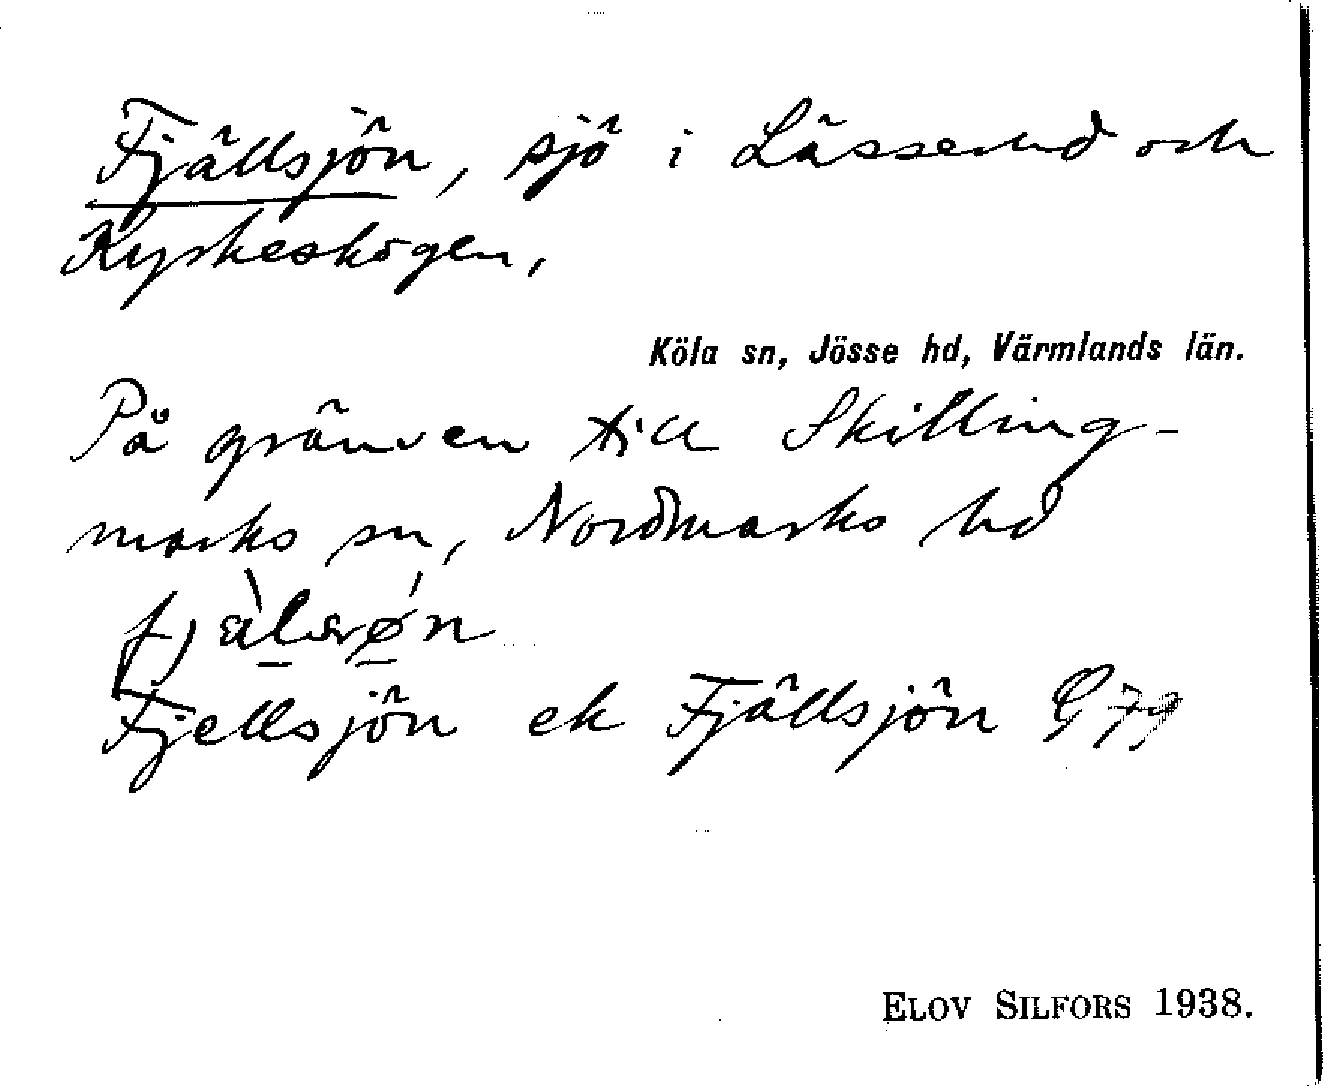 Fjällsjön, sjö i Lässerud och
Kyrkeskogen,
Köla sn, Jösse hd, Värmlands län.
På gränsen till Skilling-
marks sn, Nordmarks hd
Fjellsjön ek Fjällsjön G 79
ELOV SILFORS 1938.